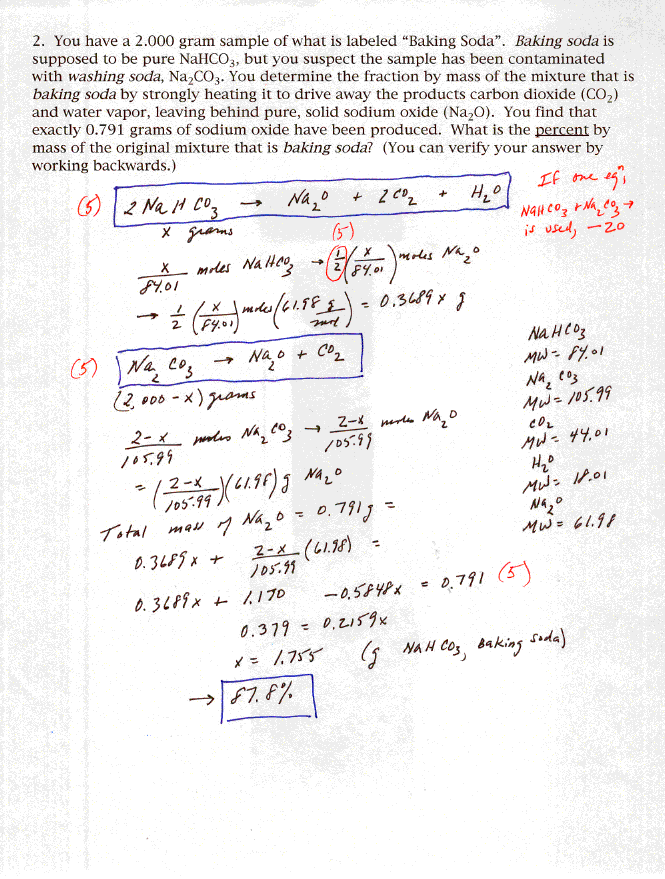 2. You have a 2.000 gram sample of what is labeled “Baking Soda”. Baking soda is
supposed to be pure NaHCO₃, but you suspect the sample has been contaminated
with washing soda, Na₂CO₃. You determine the fraction by mass of the mixture that is
baking soda by strongly heating it to drive away the products carbon dioxide (CO₂)
and water vapor, leaving behind pure, solid sodium oxide (Na₂O). You find that
exactly 0.791 grams of sodium oxide have been produced. What is the percent by
mass of the original mixture that is baking soda? (You can verify your answer by
working backwards.)
If one eqⁿ,
NaHCO₃ + Na₂CO₃ →
is used, −20
(5) 2 NaHCO₃ → Na₂O + 2 CO₂ + H₂O
x grams
(5)
x/84.01 moles NaHCO₃ → (1/2)(x/84.01) moles Na₂O
→ 1/2 (x/84.01) moles (61.98 g/mol) = 0.3689 x g
(5) Na₂CO₃ → Na₂O + CO₂
(2.000 − x) grams
2−x/105.99 moles Na₂CO₃ → 2−x/105.99 moles Na₂O
= (2−x/105.99)(61.98) g Na₂O
Total mass of Na₂O = 0.791 g =
0.3689 x + 2−x/105.99 (61.98) =
0.3689 x + 1.170 − 0.5848x = 0.791 (5)
0.379 = 0.2159x
x = 1.755 (g NaHCO₃, Baking Soda)
→ 87.8%
NaHCO₃
MW = 84.01
Na₂CO₃
MW = 105.99
CO₂
MW = 44.01
H₂O
MW = 18.01
Na₂O
MW = 61.98